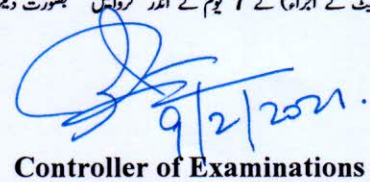 کے اجراء) کے 7 یوم کے اندر کروائیں بصورت
9/2/2021.
Controller of Examinations